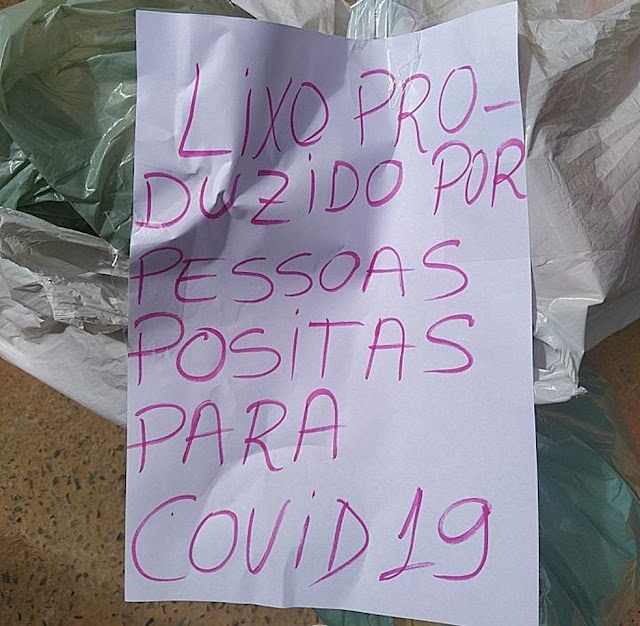 LIXO PRO-
DUZIDO POR
PESSOAS
POSITAS
PARA
COVID 19